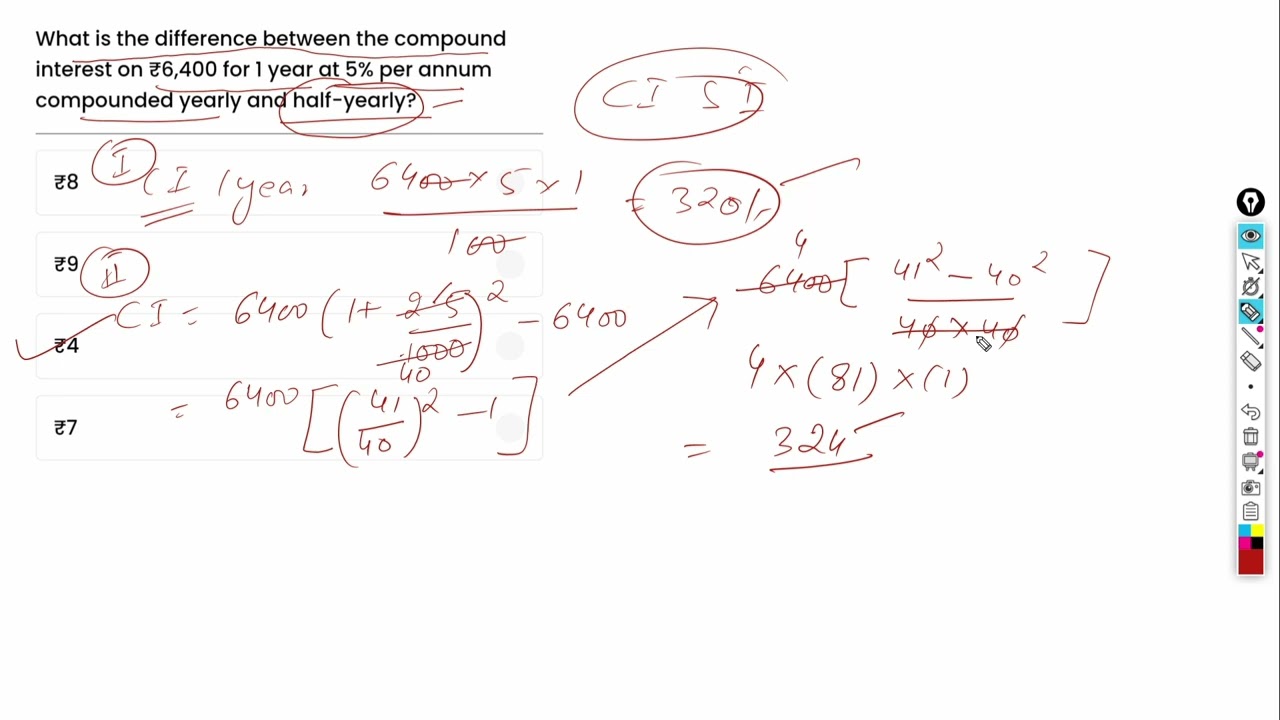 What is the difference between the compound
interest on ₹6,400 for 1 year at 5% per annum
compounded yearly and half-yearly?
CI SI
₹8
I
CI 1 year 6400 × 5 × 1 = 320/-
100
₹9
II
CI = 6400 (1 + 25/1000)² - 6400
40
₹4
= 6400 [(41/40)² - 1]
₹7
4
6400 [41² - 40²]
40 × 40
4 × (81) × (1)
= 324